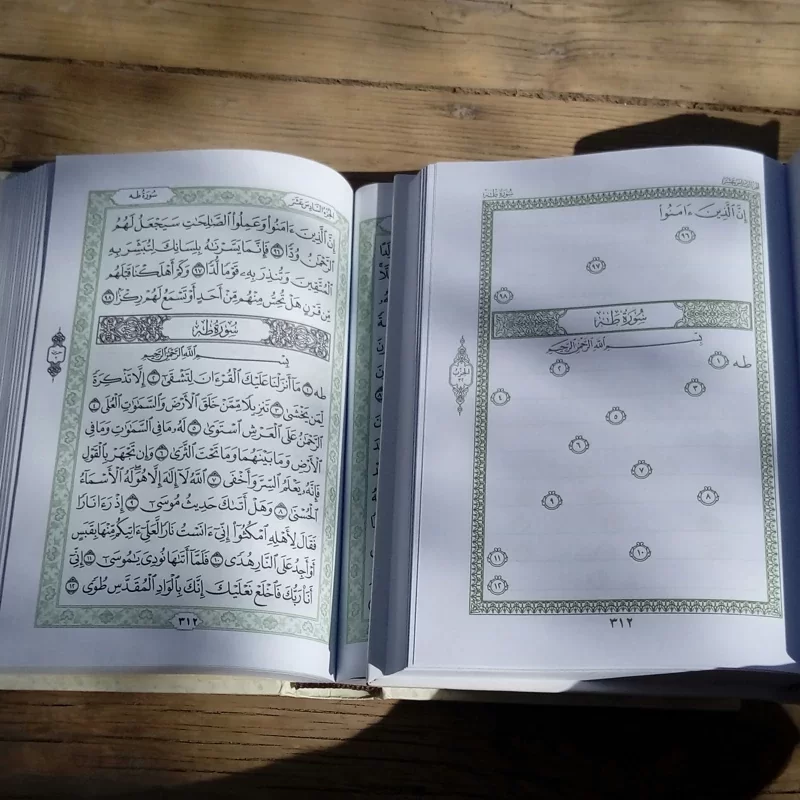 سُورَةُ طه
الجُزْءُ السَّادِسَ عَشَرَ
إِنَّ ٱلَّذِينَ ءَامَنُوا۟ وَعَمِلُوا۟ ٱلصَّٰلِحَٰتِ سَيَجْعَلُ لَهُمُ
ٱلرَّحْمَٰنُ وُدًّا ٩٦ فَإِنَّمَا يَسَّرْنَٰهُ بِلِسَانِكَ لِتُبَشِّرَ بِهِ
ٱلْمُتَّقِينَ وَتُنذِرَ بِهِۦ قَوْمًا لُّدًّا ٩٧ وَكَمْ أَهْلَكْنَا قَبْلَهُم
مِّن قَرْنٍ هَلْ تُحِسُّ مِنْهُم مِّنْ أَحَدٍ أَوْ تَسْمَعُ لَهُمْ رِكْزًۢا ٩٨
سُورَةُ طه
بِسْمِ ٱللَّهِ ٱلرَّحْمَٰنِ ٱلرَّحِيمِ
طه ١ مَآ أَنزَلْنَا عَلَيْكَ ٱلْقُرْءَانَ لِتَشْقَىٰٓ ٢ إِلَّا تَذْكِرَةً
لِّمَن يَخْشَىٰ ٣ تَنزِيلًا مِّمَّنْ خَلَقَ ٱلْأَرْضَ وَٱلسَّمَٰوَٰتِ ٱلْعُلَى ٤
ٱلرَّحْمَٰنُ عَلَى ٱلْعَرْشِ ٱسْتَوَىٰ ٥ لَهُۥ مَا فِى ٱلسَّمَٰوَٰتِ وَمَا فِى
ٱلْأَرْضِ وَمَا بَيْنَهُمَا وَمَا تَحْتَ ٱلثَّرَىٰ ٦ وَإِن تَجْهَرْ بِٱلْقَوْلِ
فَإِنَّهُۥ يَعْلَمُ ٱلسِّرَّ وَأَخْفَى ٧ ٱللَّهُ لَآ إِلَٰهَ إِلَّا هُوَ لَهُ ٱلْأَسْمَآءُ
ٱلْحُسْنَىٰ ٨ وَهَلْ أَتَىٰكَ حَدِيثُ مُوسَىٰٓ ٩ إِذْ رَءَا نَارًا
فَقَالَ لِأَهْلِهِ ٱمْكُثُوٓا۟ إِنِّىٓ ءَانَسْتُ نَارًا لَّعَلِّىٓ ءَاتِيكُم مِّنْهَا بِقَبَسٍ
أَوْ أَجِدُ عَلَى ٱلنَّارِ هُدًى ١٠ فَلَمَّآ أَتَىٰهَا نُودِىَ يَٰمُوسَىٰٓ ١١ إِنِّىٓ
أَنَا۠ رَبُّكَ فَٱخْلَعْ نَعْلَيْكَ إِنَّكَ بِٱلْوَادِ ٱلْمُقَدَّسِ طُوًى ١٢
٣١٢
سُورَةُ طه
إِنَّ ٱلَّذِينَ ءَامَنُوا۟
٩٦
٩٧
٩٨
سُورَةُ طه
بِسْمِ ٱللَّهِ ٱلرَّحْمَٰنِ ٱلرَّحِيمِ
طه ١ ٢
٣ ٤
٥
٦
٧
٨ ٩
١٠ ١١
١٢
٣١٢